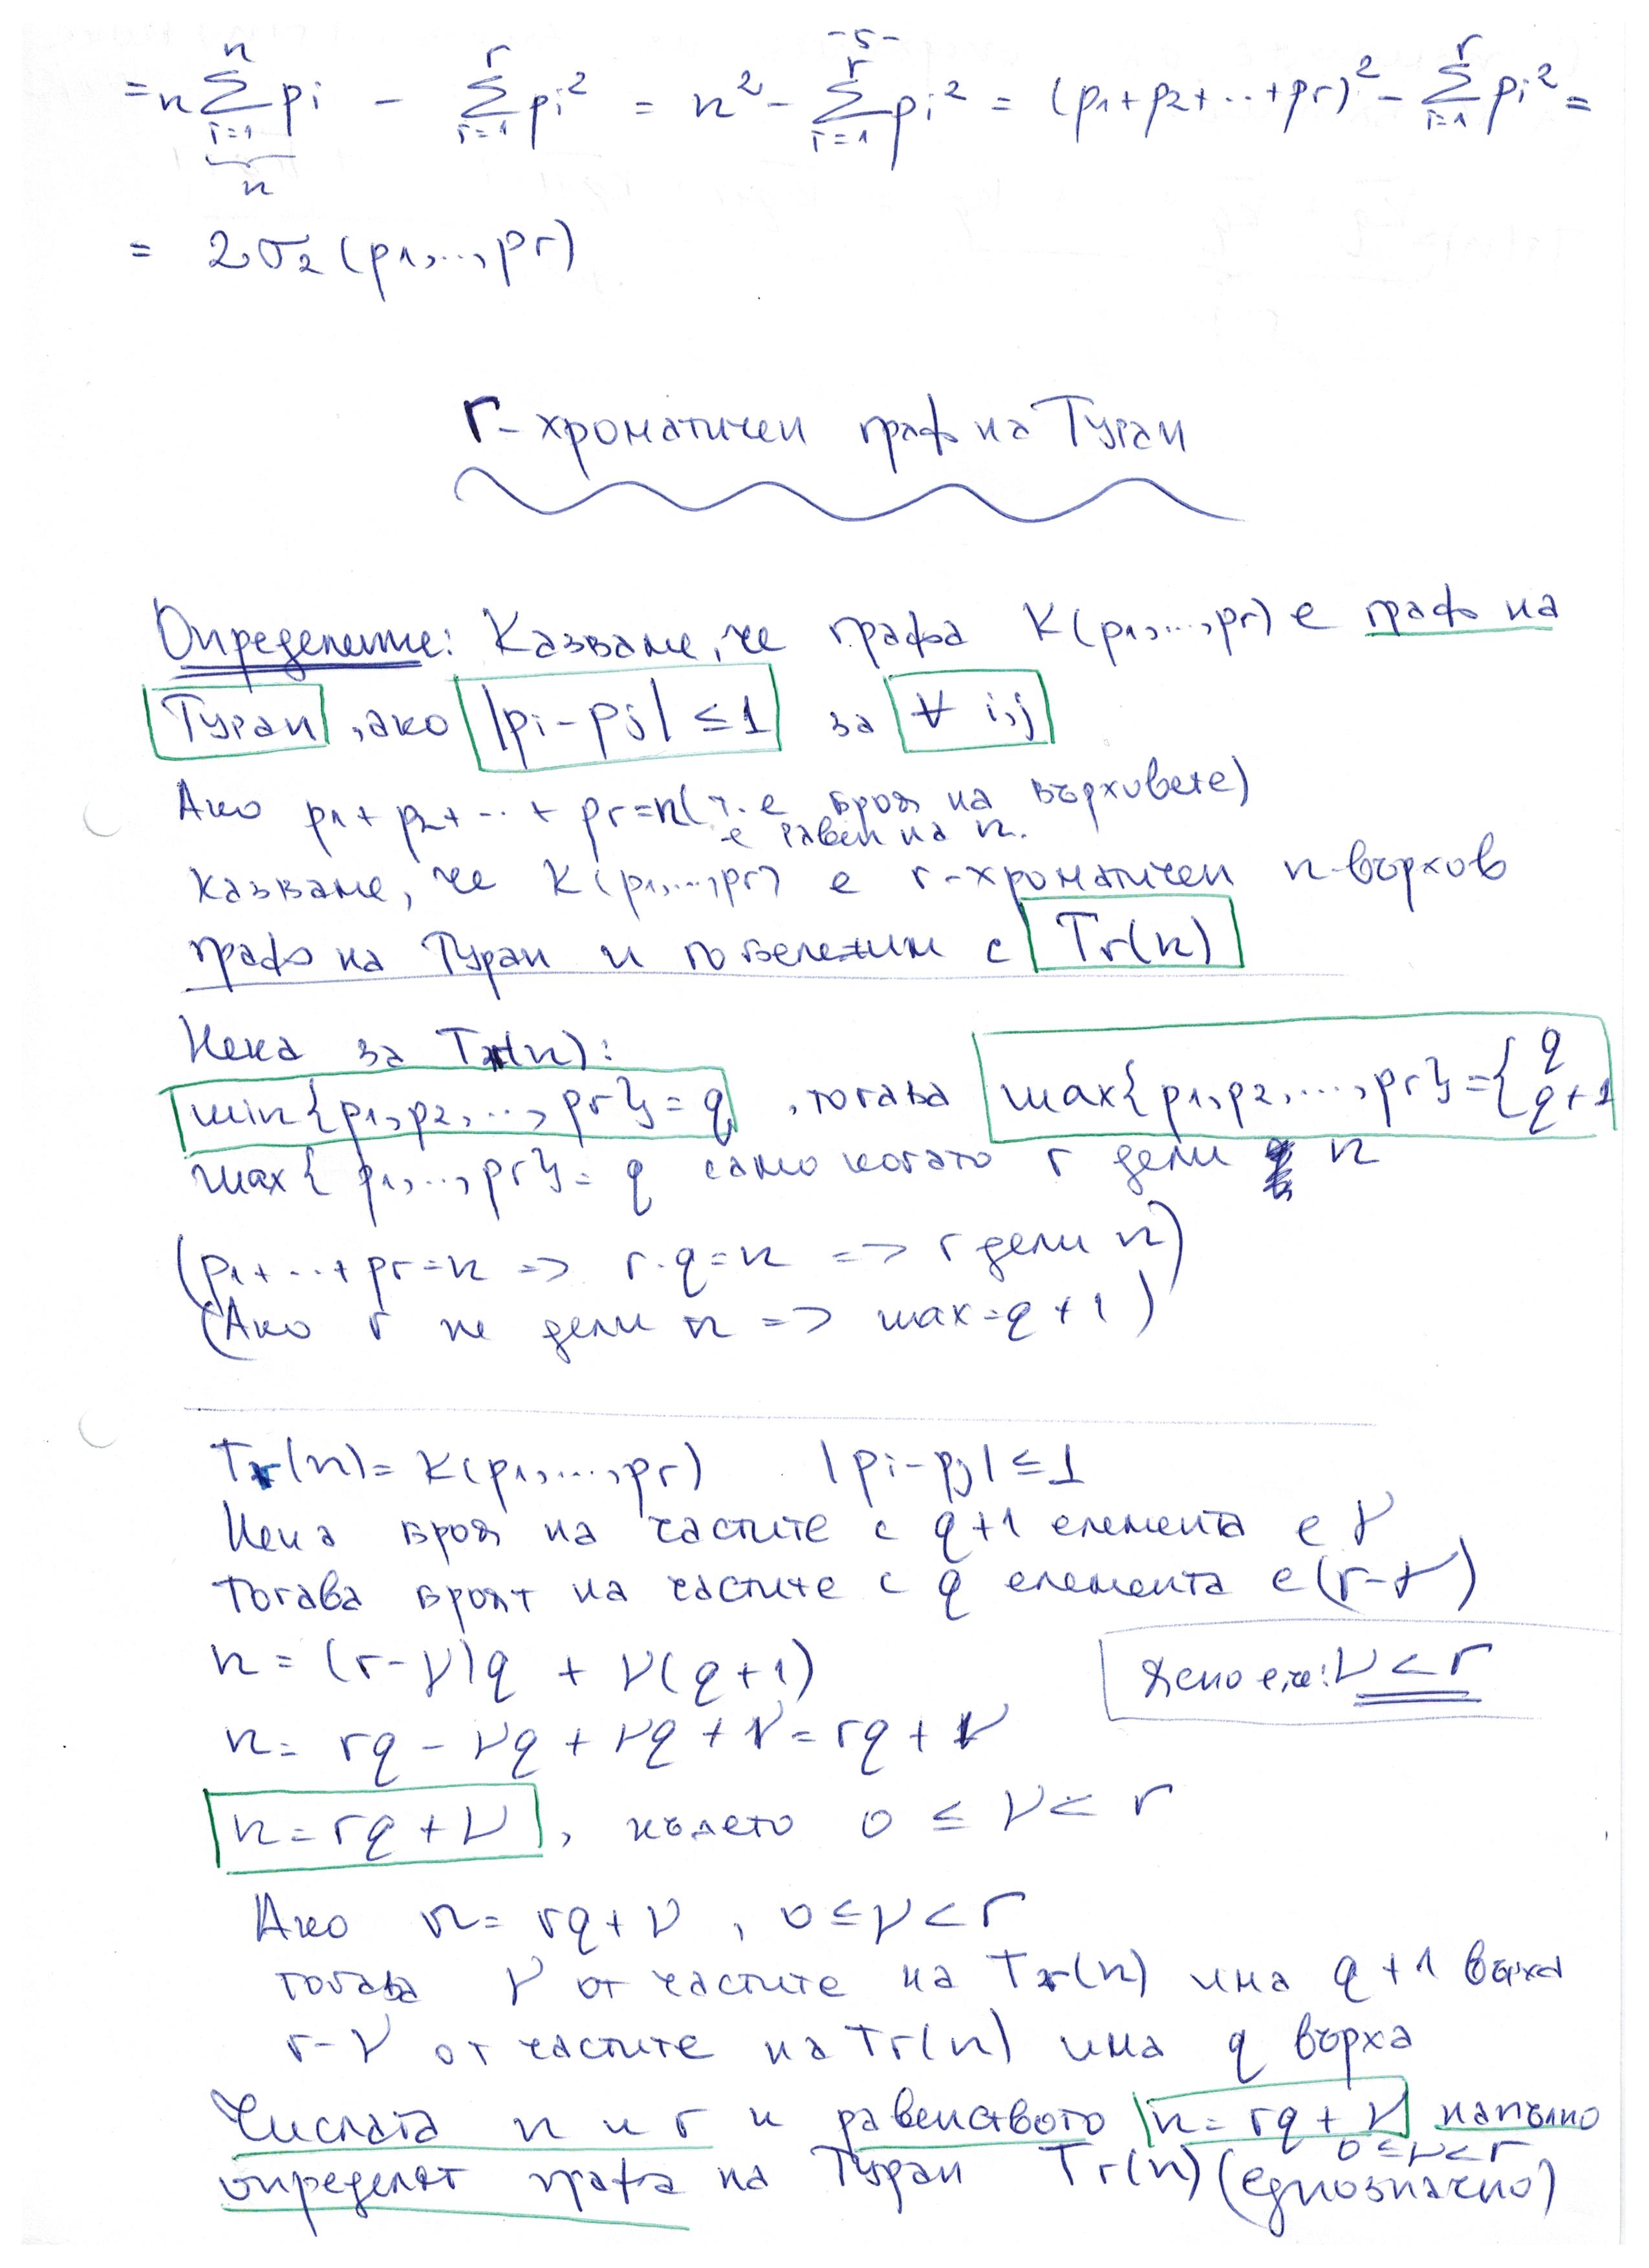 -5-
= n \sum_{i=1}^{n} p_i - \sum_{i=1}^{r} p_i^2 = n^2 - \sum_{i=1}^{r} p_i^2 = (p_1+p_2+...+p_r)^2 - \sum_{i=1}^{r} p_i^2 =
n
= 2σ_2 (p_1,...,p_r)
r-хроматичен граф на Туран
Определение: Казваме, че графа K(p_1,...,p_r) е граф на
Туран, ако |p_i - p_j| ≤ 1 за ∀ i,j
Ако p_1+p_2+...+p_r=n (т.е броя на върховете)
е равен на n.
казваме, че K(p_1,...,p_r) е r-хроматичен n-върхов
граф на Туран и го бележим с T_r(n)
Нека за T_r(n):
min{p_1,p_2,...,p_r} = q, тогава max{p_1,p_2,...,p_r} = { q
q+1
max{p_1,...,p_r} = q само когато r дели n
(p_1+...+p_r=n => r.q=n => r дели n)
(Ако r не дели n => max=q+1)
T_r(n) = K(p_1,...,p_r) |p_i-p_j| ≤ 1
Нека броя на частите с q+1 елемента е ν
Тогава броят на частите с q елемента е (r-ν)
n = (r-ν)q + ν(q+1)
Ясно е, че: ν < r
n = rq - νq + νq + ν = rq + ν
n = rq + ν, където 0 ≤ ν < r
Ако n = rq + ν, 0 ≤ ν < r
тогава ν от частите на T_r(n) има q+1 върха
r-ν от частите на T_r(n) има q върха
Числата n и r и равенството n = rq + ν напълно
0 ≤ ν < r
определят графа на Туран T_r(n) (еднозначно)